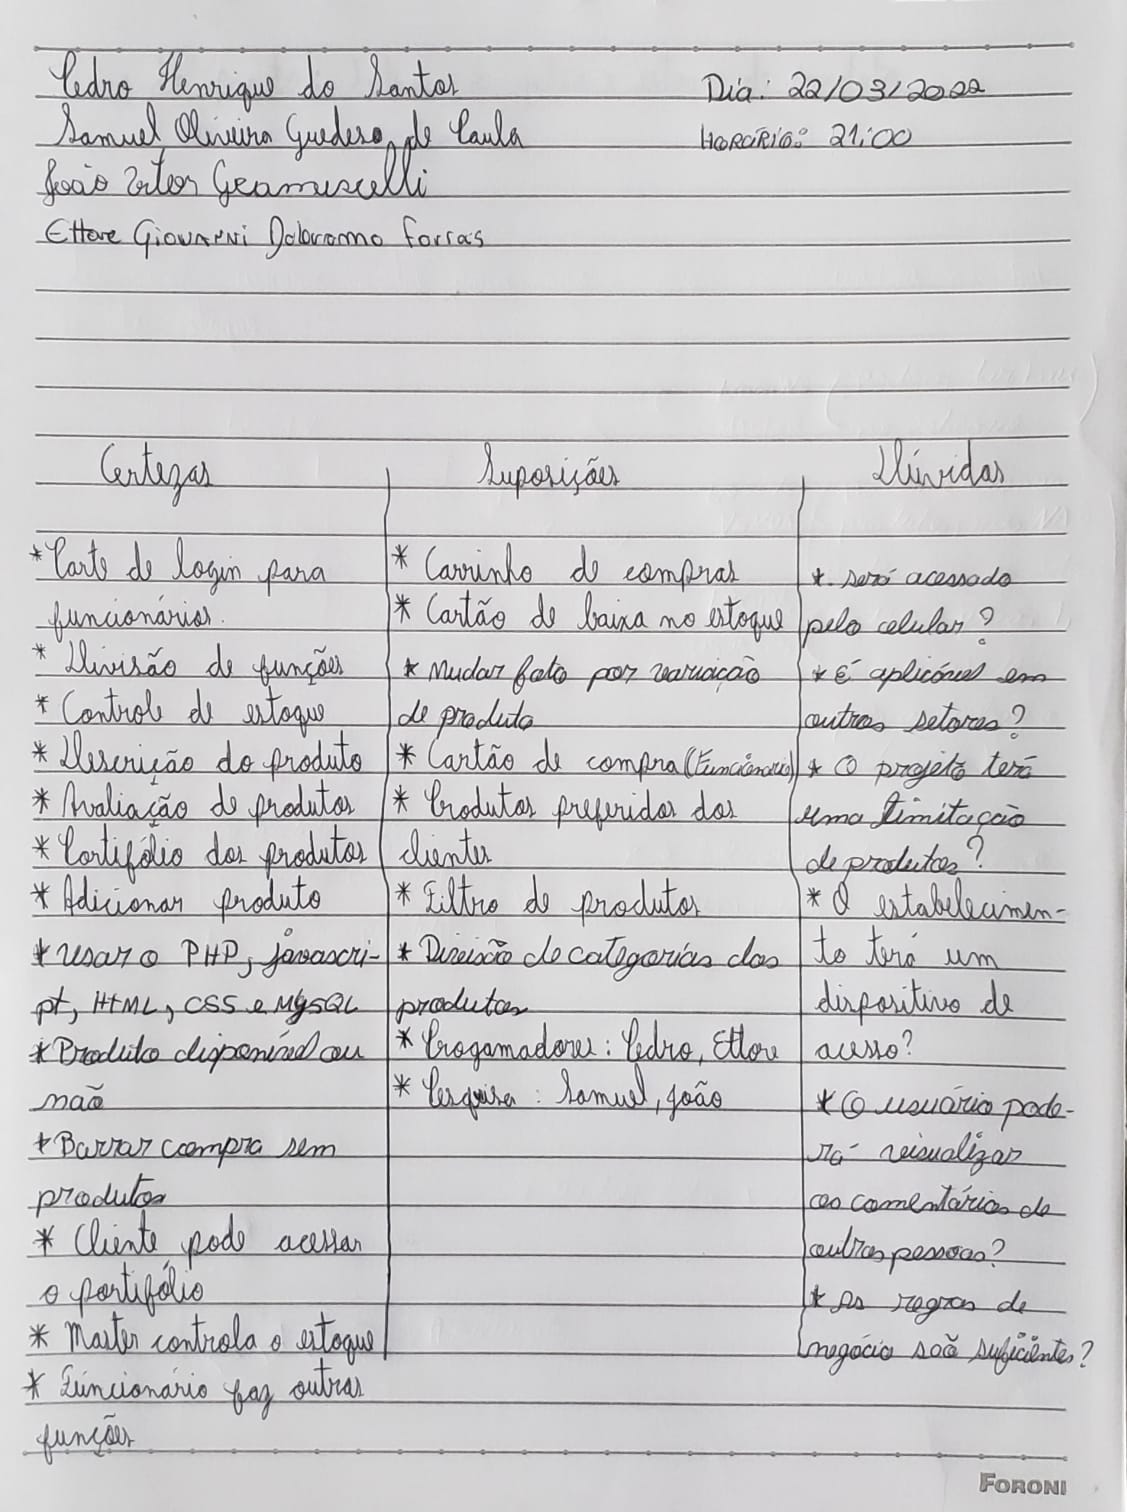 Pedro Henrique do Santos
Dia: 22/03/2022
Samuel Oliveira Guedes de Paula
HORÁRIO: 21:00
João Vitor
Ettore Giovanni
Certezas
Suposições
Dúvidas
* Parte de login para
funcionários.
* Divisão de funções
* Controle de estoque
* Descrição do produto
* Avaliação de produtos
* Portifólio dos produtos
* Adicionar produto
* Usar o PHP, javascri-
pt, HTML, CSS e MySQL
* Produto disponível ou
não
* Barrar compra sem
produtos
* Cliente pode acessar
o portifólio
* Master controla o estoque
* Funcionário faz outras
funções
* Carrinho de compras
* Cartão de baixa no estoque
* Mudar foto por variação
de produto
* Cartão de compra (Funcionário)
* Produtos preferidos dos
clientes
* Filtro de produtos
* Divisão de categorias dos
produtos
* Progamadores: Pedro, Ettore
* Pesquisa: Samuel, João
* será acessado
pelo celular?
* É aplicável em
outros setores?
* O projeto terá
uma limitação
de produtos?
* O estabelecimen-
to terá um
dispositivo de
acesso?
* O usuário pode-
rá visualizar
os comentários de
outras pessoas?
* As regras de
negócio são suficientes?
FORONI